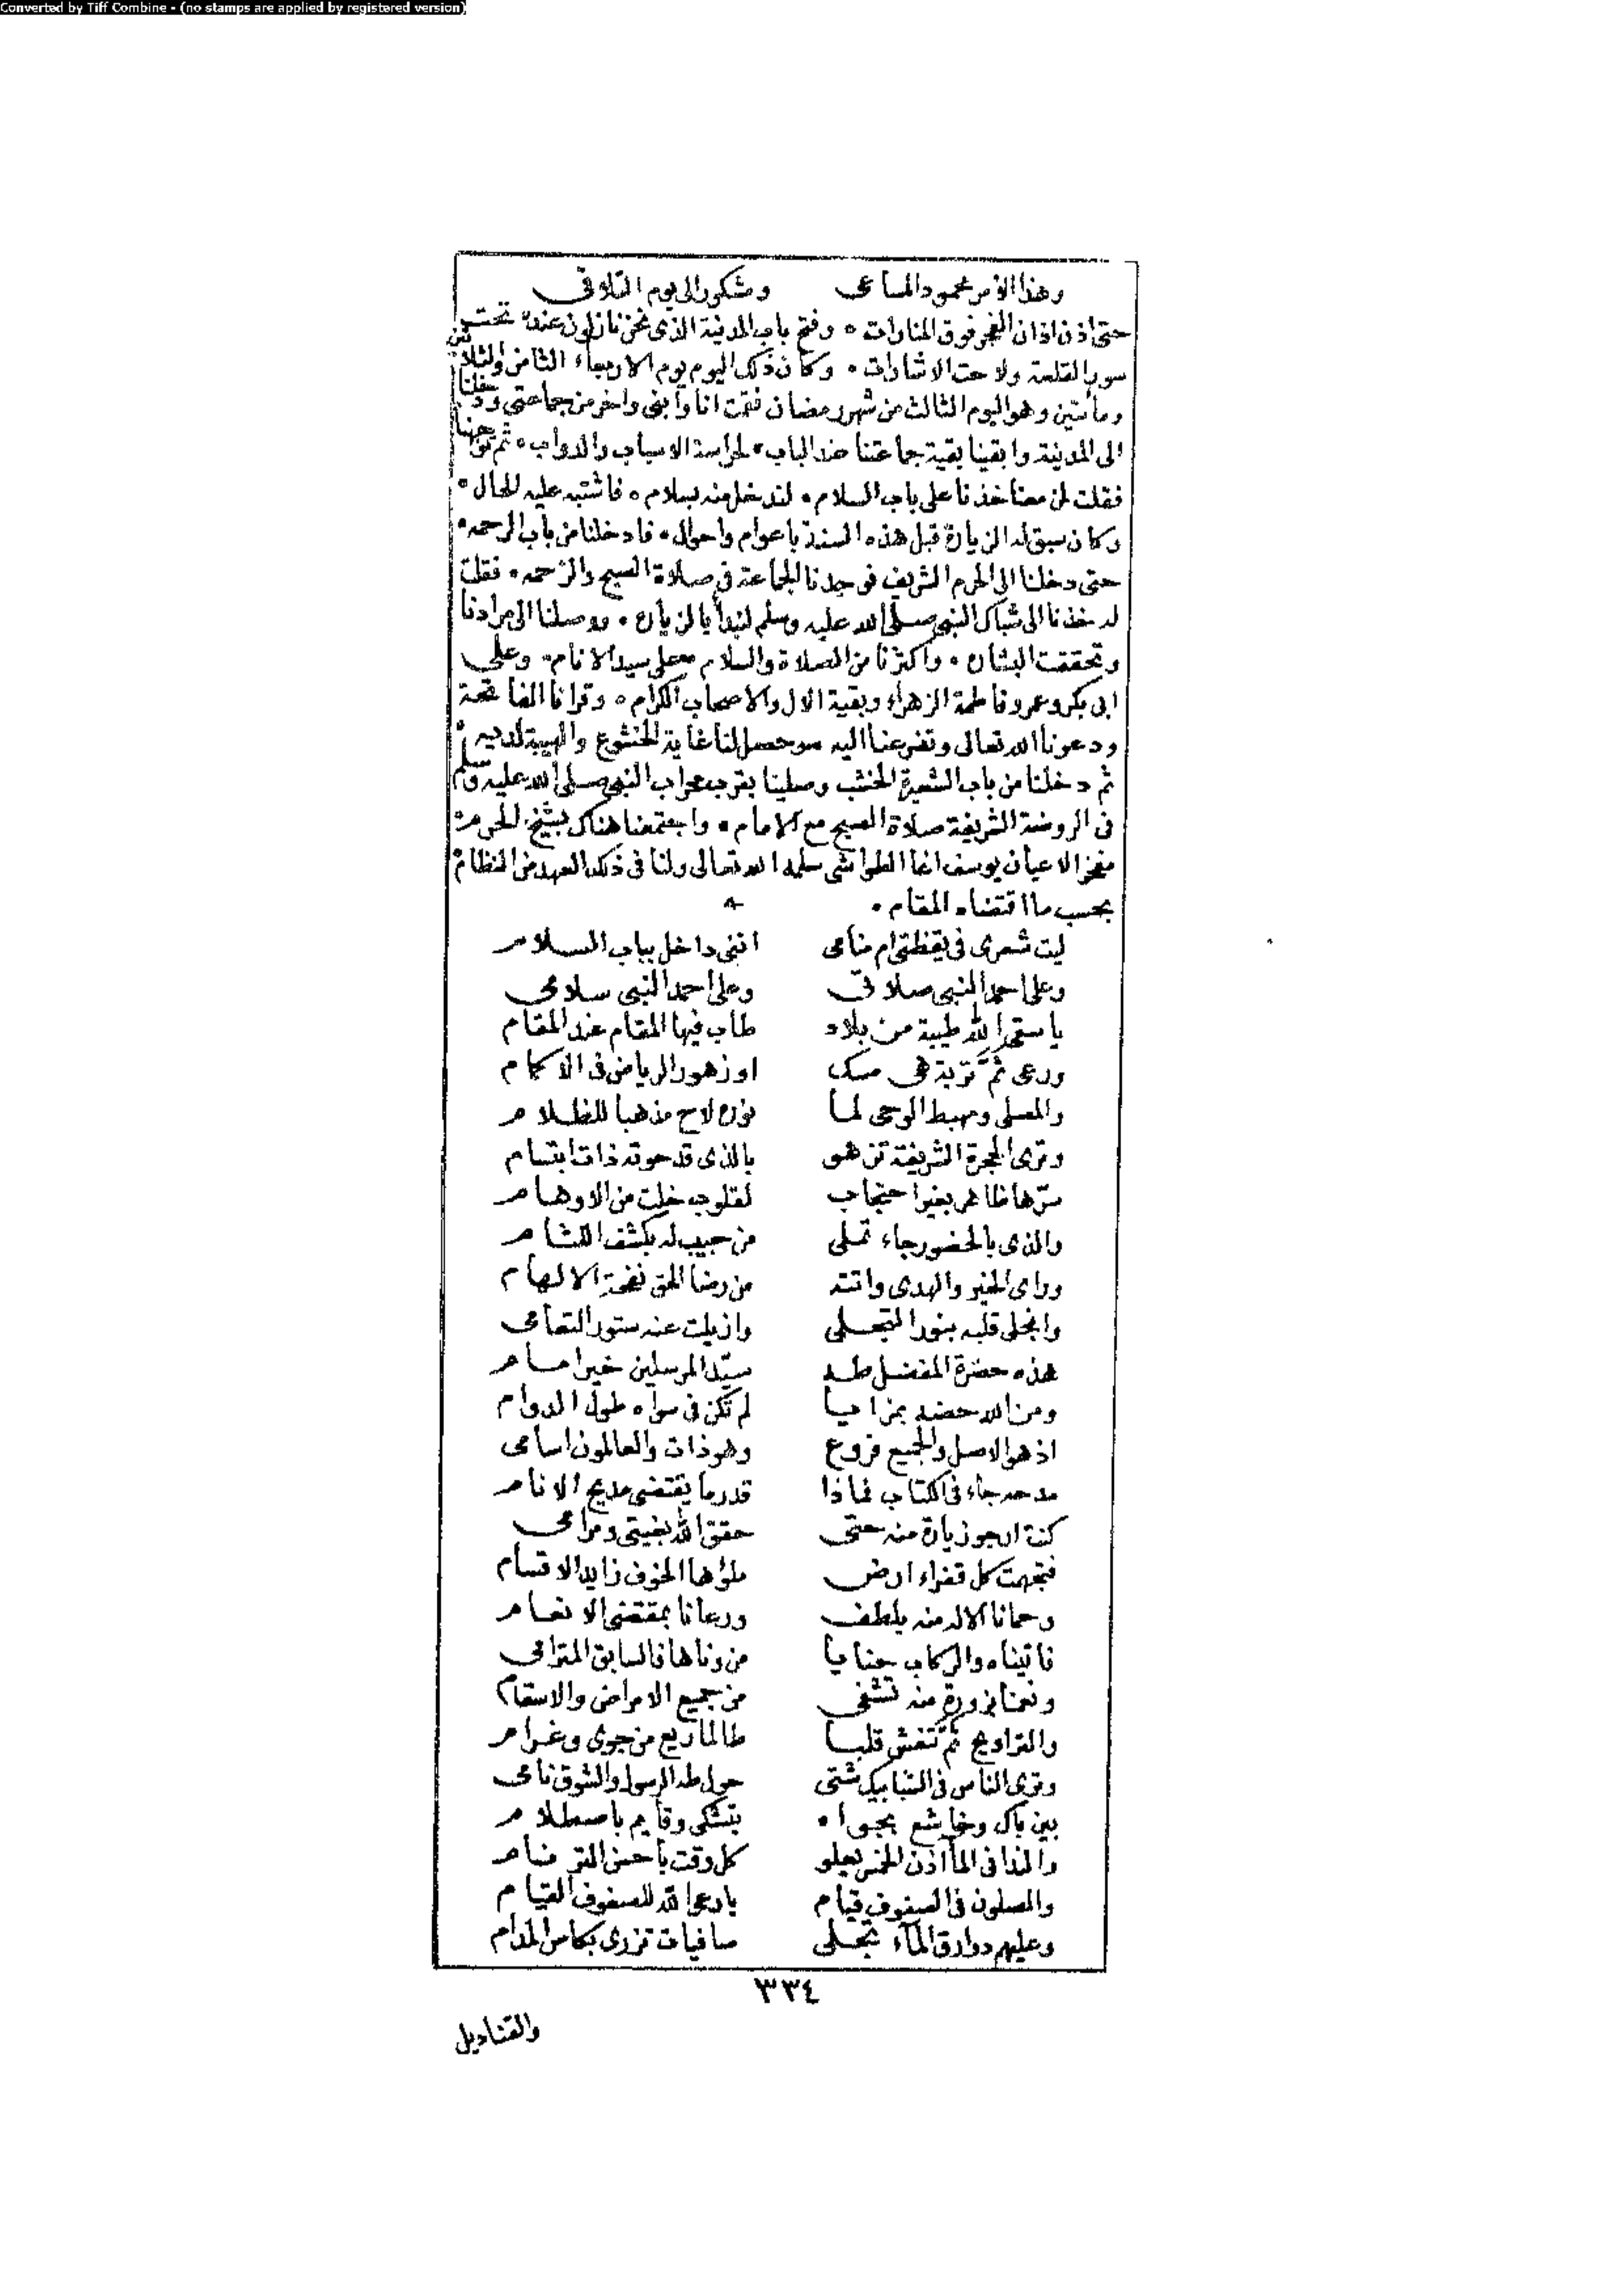 Converted by Tiff Combine - (no stamps are applied by registered version)
وهذا الامر محمود المساعى ومشكور الى يوم التلاقى
حتى اذن اذان الفجر فوق المنارات • وفتح باب المدينة الذى نحن نازلون عنده تحت
سور القلعة ولاحت الاشارات • وكان ذلك اليوم يوم الاربعاء الثامن والثلاثين
ومأتين وهو اليوم الثالث من شهر رمضان فقمت انا وابنى واخر من جماعتى ودخلنا
الى المدينة وابقينا بقية جماعتنا عند الباب • لحراسة الاسباب والدواب • ثم توجهنا
فقلت لمن معنا خذنا على باب السلام • لندخل منه بسلام • فاشتبه عليه الحال •
وكان سبق له الزيارة قبل هذه السنة باعوام واحوال • فادخلنا من باب الرحمه •
حتى دخلنا الى الحرم الشريف فوجدنا الجماعة فى صلاة الصبح والزحمه • فقلت
له خذنا الى شباك النبى صلى الله عليه وسلم لنبدأ بالزيارة • ووصلنا الى مرادنا
وتحققت البشارة • واكثرنا من الصلاة والسلام • على سيد الانام • وعلى
ابى بكر وعمر وفاطمة الزهراء وبقية الال والاصحاب الكرام • وقرانا الفاتحة
ودعونا الله تعالى وتضرعنا اليه • وحصل لنا غاية الخشوع والهيبة لديه •
ثم دخلنا من باب الشعيرة الخشب وصلينا بقرب محراب النبى صلى الله عليه وسلم
فى الروضة الشريفة صلاة الصبح مع الامام • واجتمعنا هناك بشيخ الحرم
مفخر الاعيان يوسف اغا الطواشى سلمه الله تعالى ولنا فى ذلك العهد من النظام
بحسب ما اقتضاه المقام •
ليت شعرى فى يقظتى ام منامى اننى داخل بباب السلام
وعلى احمد النبى صلاتى وعلى احمد النبى سلامى
يا سقى الله طيبة من بلاد طاب فيها المقام عند المقام
ورعى ثم تربة هى مسك او زهور الرياض فى الاكمام
والمصلى ومهبط الوحى لما نوره لاح مذهبا للظلام
وترى الحجرة الشريفة تزهو بالذى قد حوته ذات ابتسام
سرّها ظاهر بغير احتجاب لقلوب خلت من الاوهام
والذى بالحضور جاء تملى من حبيب له بكشف اللثام
وراى الخير والهدى واتته من رضا الحق نفحة الالهام
وانجلى قلبه بنور التجلى وازيلت عنه ستور التعامى
هذه حضرة المفضل طه سيّد المرسلين خير امام
ومن الله خصه بمزايا لم تكن فى سواه طول الدوام
اذ هو الاصل والجميع فروع وهو ذات والعالمون اسامى
مدحه جاء فى الكتاب فماذا قدر ما يقتضى مديح الانام
كنت ارجو زيارة منه حتى حقق الله بغيتى ومرامى
فتجهمت كل قفراء ارض ملؤها الخوف زايد الاقسام
وحمانا الاله منه بلطف ورعانا بمقتضى الانعام
فاتيناه والركاب حنايا من وناها فالسابق المترامى
ونعمنا بزورة منه تشفى من جميع الامراض والاسقام
والتراويح ثم تنعش قلبا طالما ريع من جوى وغرام
وترى الناس فى الشبابيك شتى حول طه الرسول والشوق نامى
بين باك وخاشع بجواه يتشكى وقايم باصطلام
والندا فى المآذن الخمس يعلو كل وقت باحسن الترنام
والمصلون فى الصفوف قيام يا رعى الله للصفوف القيام
وعليهم دوارق المآء تجلى صافيات تزرى بكاس المدام
٣٣٤
والقناديل